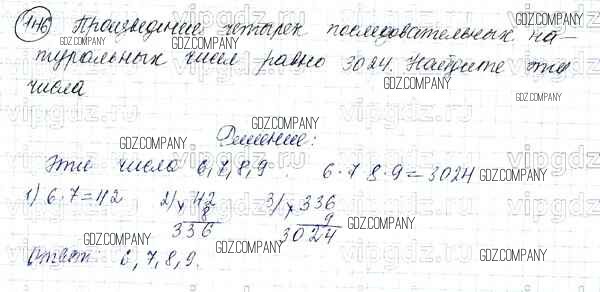 146 Произведение четырех последовательных на-
туральных чисел равно 3024. Найдите эти
числа
Решение:
Эти числа 6,7,8,9. 6·7·8·9=3024
1) 6·7=42 2) 42 3) 336
× 8 × 9
336 3024
Ответ 6,7,8,9.
GDZ.COMPANY
vipgdz.ru